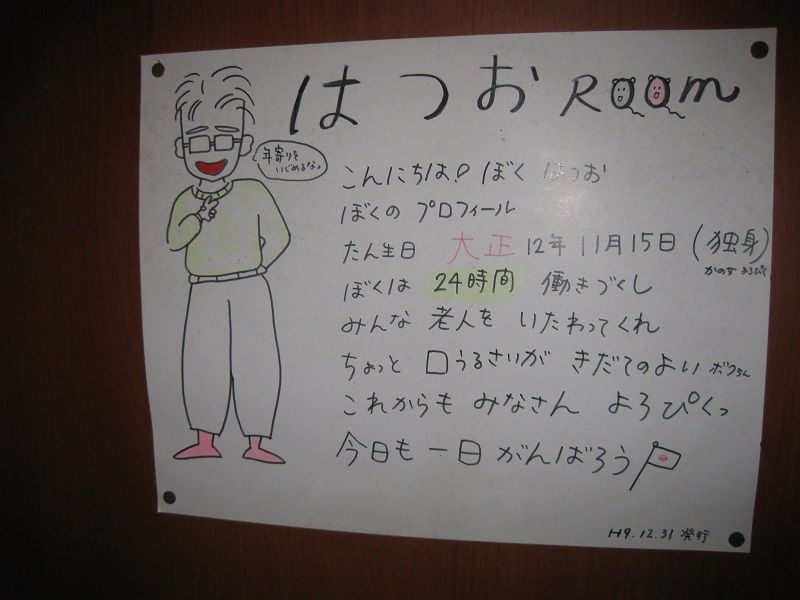 はつお Room
年寄りを
いじめるなっ
こんにちは! ぼく はつお
ぼくの プロフィール
たん生日 大正 12年 11月15日 (独身)
かの女 よろぴく
ぼくは 24時間 働きづくし
みんな 老人を いたわってくれ
ちょっと 口うるさいが きだてのよい ボクちん
これからも みなさん よろぴくっ
今日も 一日 がんばろう
H9.12.31 発行